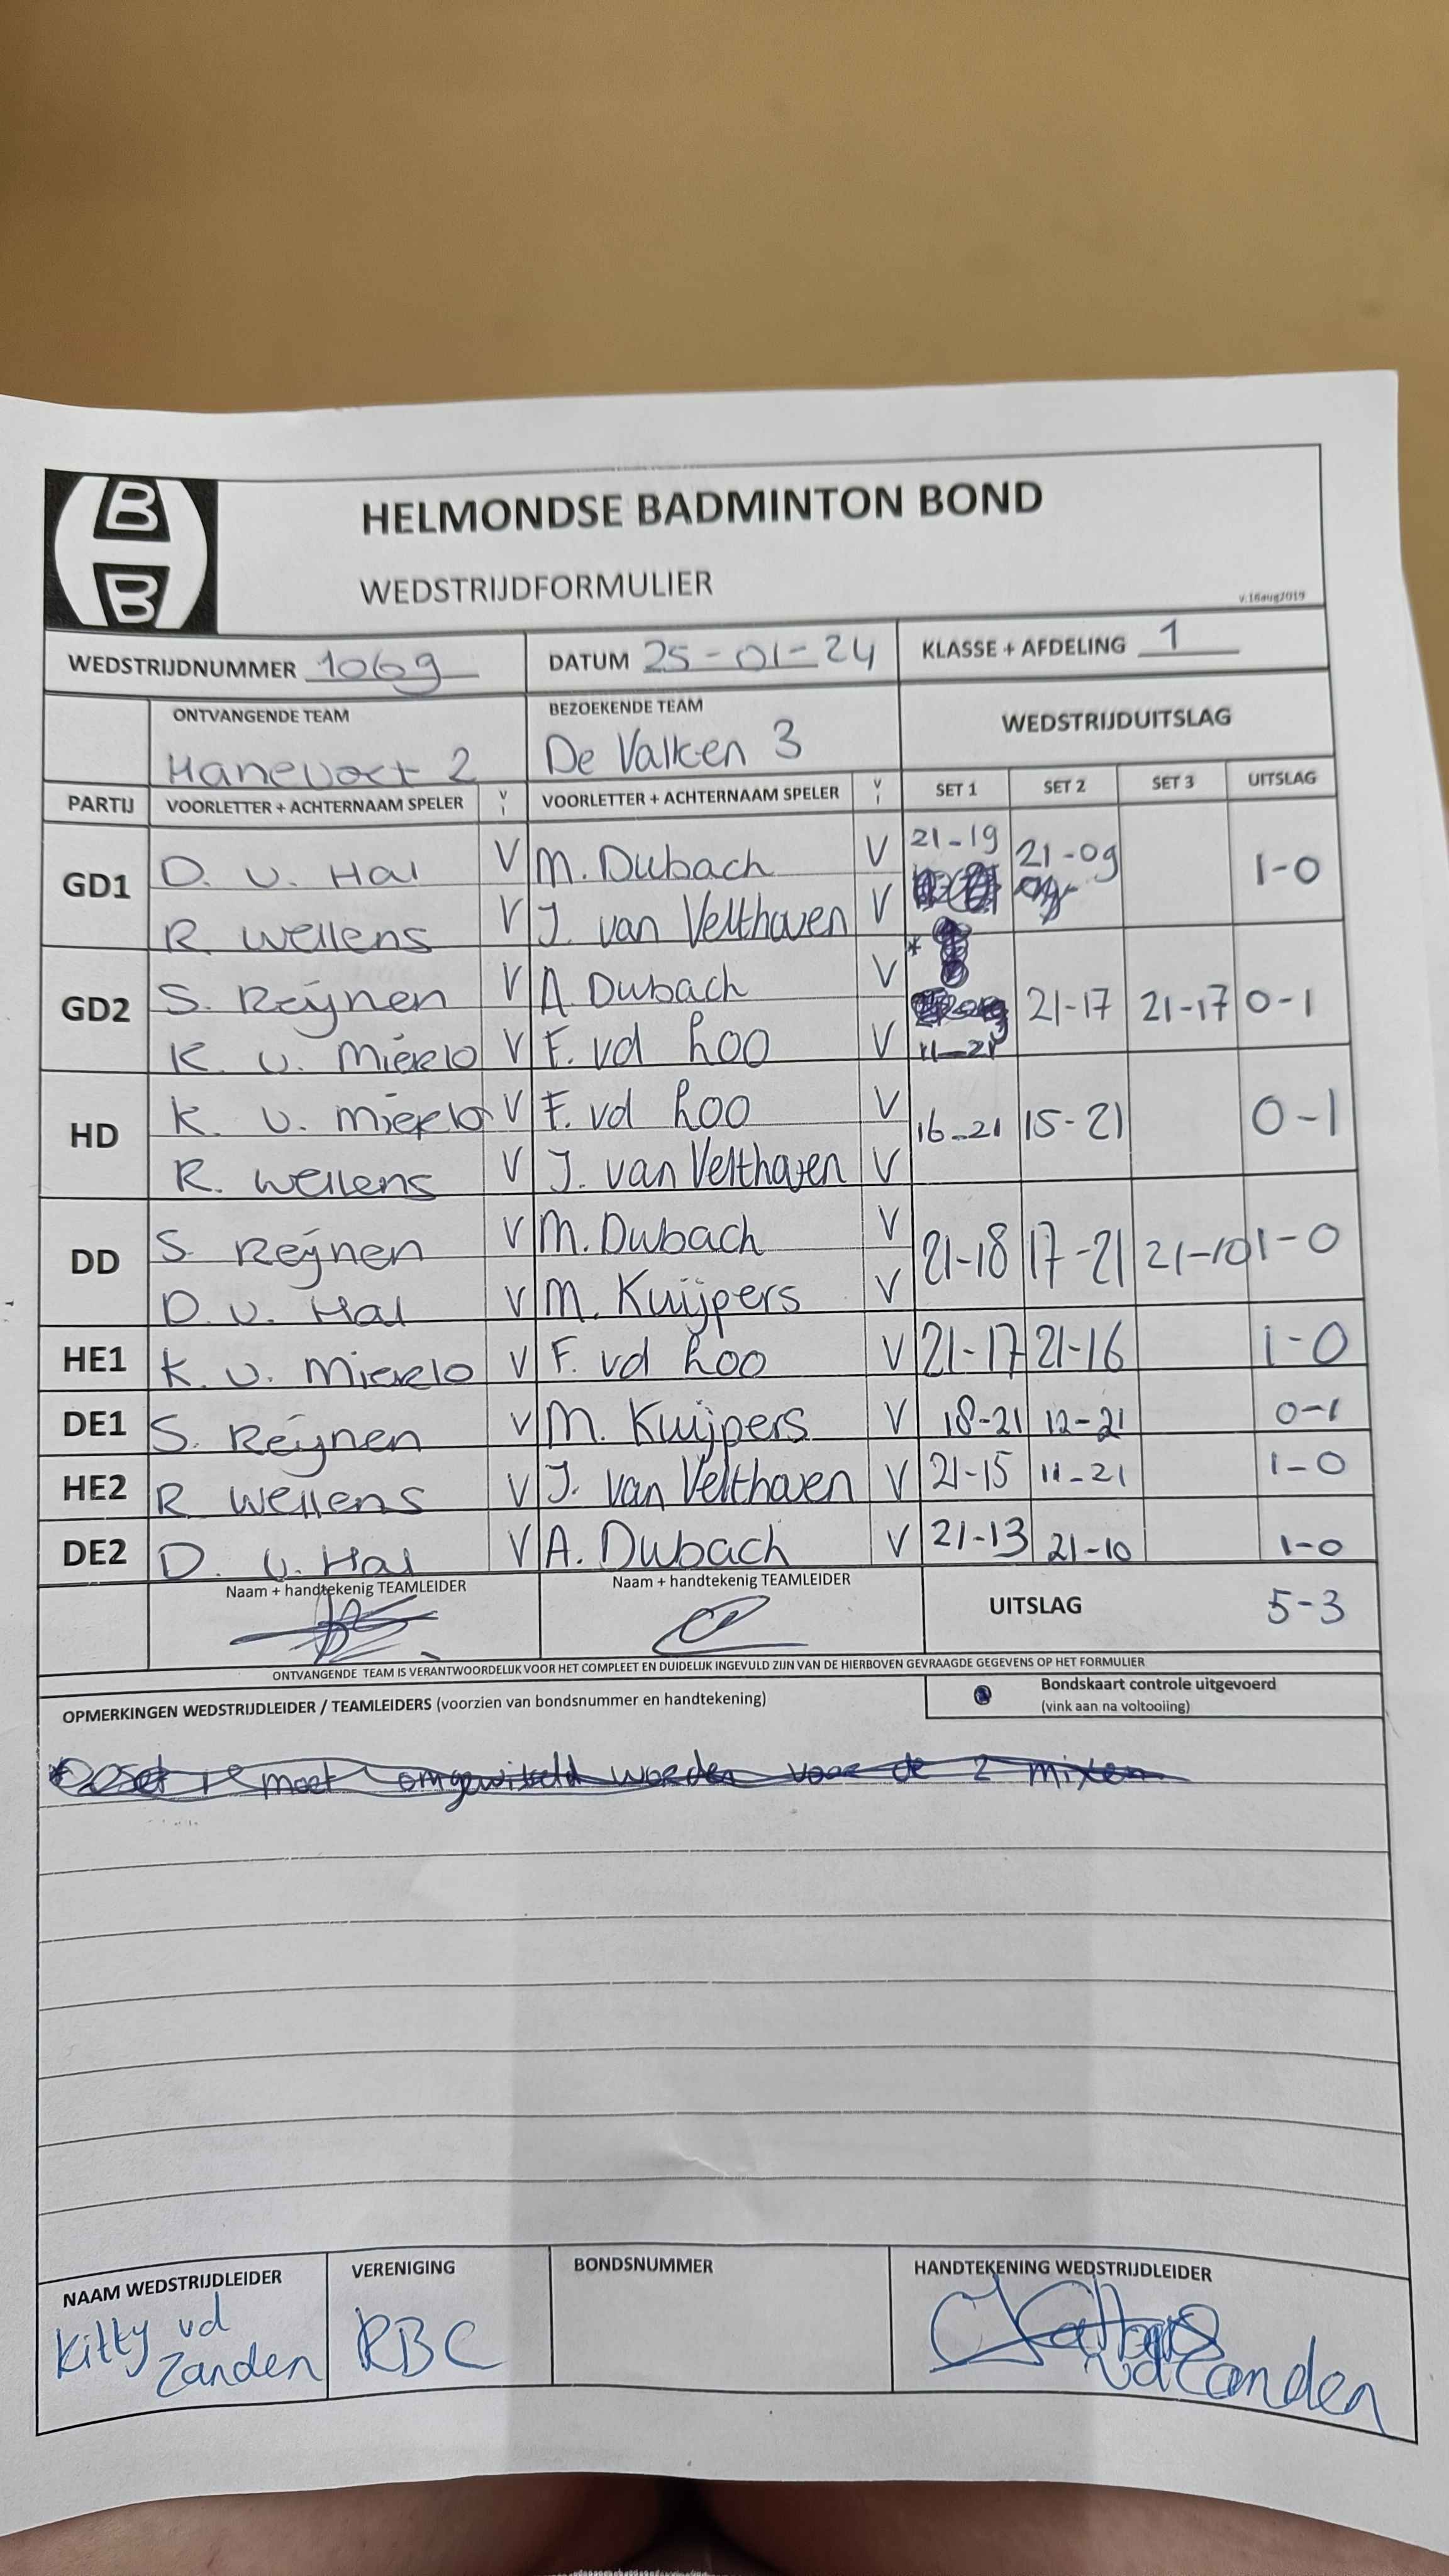 B
B
HELMONDSE BADMINTON BOND
WEDSTRIJDFORMULIER
v.16aug2019
WEDSTRIJDNUMMER 1069 DATUM 25-01-24 KLASSE + AFDELING 1
ONTVANGENDE TEAM BEZOEKENDE TEAM WEDSTRIJDUITSLAG
Hanevoet 2 De Valken 3
PARTIJ VOORLETTER + ACHTERNAAM SPELER V I VOORLETTER + ACHTERNAAM SPELER V I SET 1 SET 2 SET 3 UITSLAG
GD1 D. v. Hal V M. Dubach V 21-19 21-09 1-0
R Wellens V J. van Velthoven V
GD2 S. Reijnen V A. Dubach V 21-17 21-17 0-1
K v. Mierlo V F. vd Loo V 11-21
HD K. v. Mierlo V F. vd Loo V 16-21 15-21 0-1
R. Wellens V J. van Velthoven V
DD S. Reijnen V M. Dubach V 21-18 17-21 21-10 1-0
D. v. Hal V M. Kuijpers V
HE1 K. v. Mierlo V F. vd Loo V 21-17 21-16 1-0
DE1 S. Reijnen V M. Kuijpers V 18-21 12-21 0-1
HE2 R Wellens V J. van Velthoven V 21-15 11-21 1-0
DE2 D. v. Hal V A. Dubach V 21-13 21-10 1-0
Naam + handtekenig TEAMLEIDER Naam + handtekenig TEAMLEIDER UITSLAG 5-3
ONTVANGENDE TEAM IS VERANTWOORDELIJK VOOR HET COMPLEET EN DUIDELIJK INGEVULD ZIJN VAN DE HIERBOVEN GEVRAAGDE GEGEVENS OP HET FORMULIER
OPMERKINGEN WEDSTRIJDLEIDER / TEAMLEIDERS (voorzien van bondsnummer en handtekening) Bondskaart controle uitgevoerd
(vink aan na voltooiing)
moet omgewisseld worden voor de 2 mixen
NAAM WEDSTRIJDLEIDER VERENIGING BONDSNUMMER HANDTEKENING WEDSTRIJDLEIDER
Kitty vd Zanden RBC vd Zanden